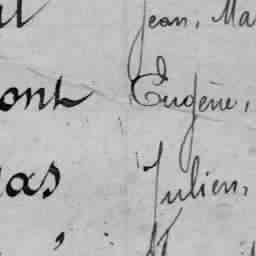 Jean, Ma
ont Eugène,
as Julien,